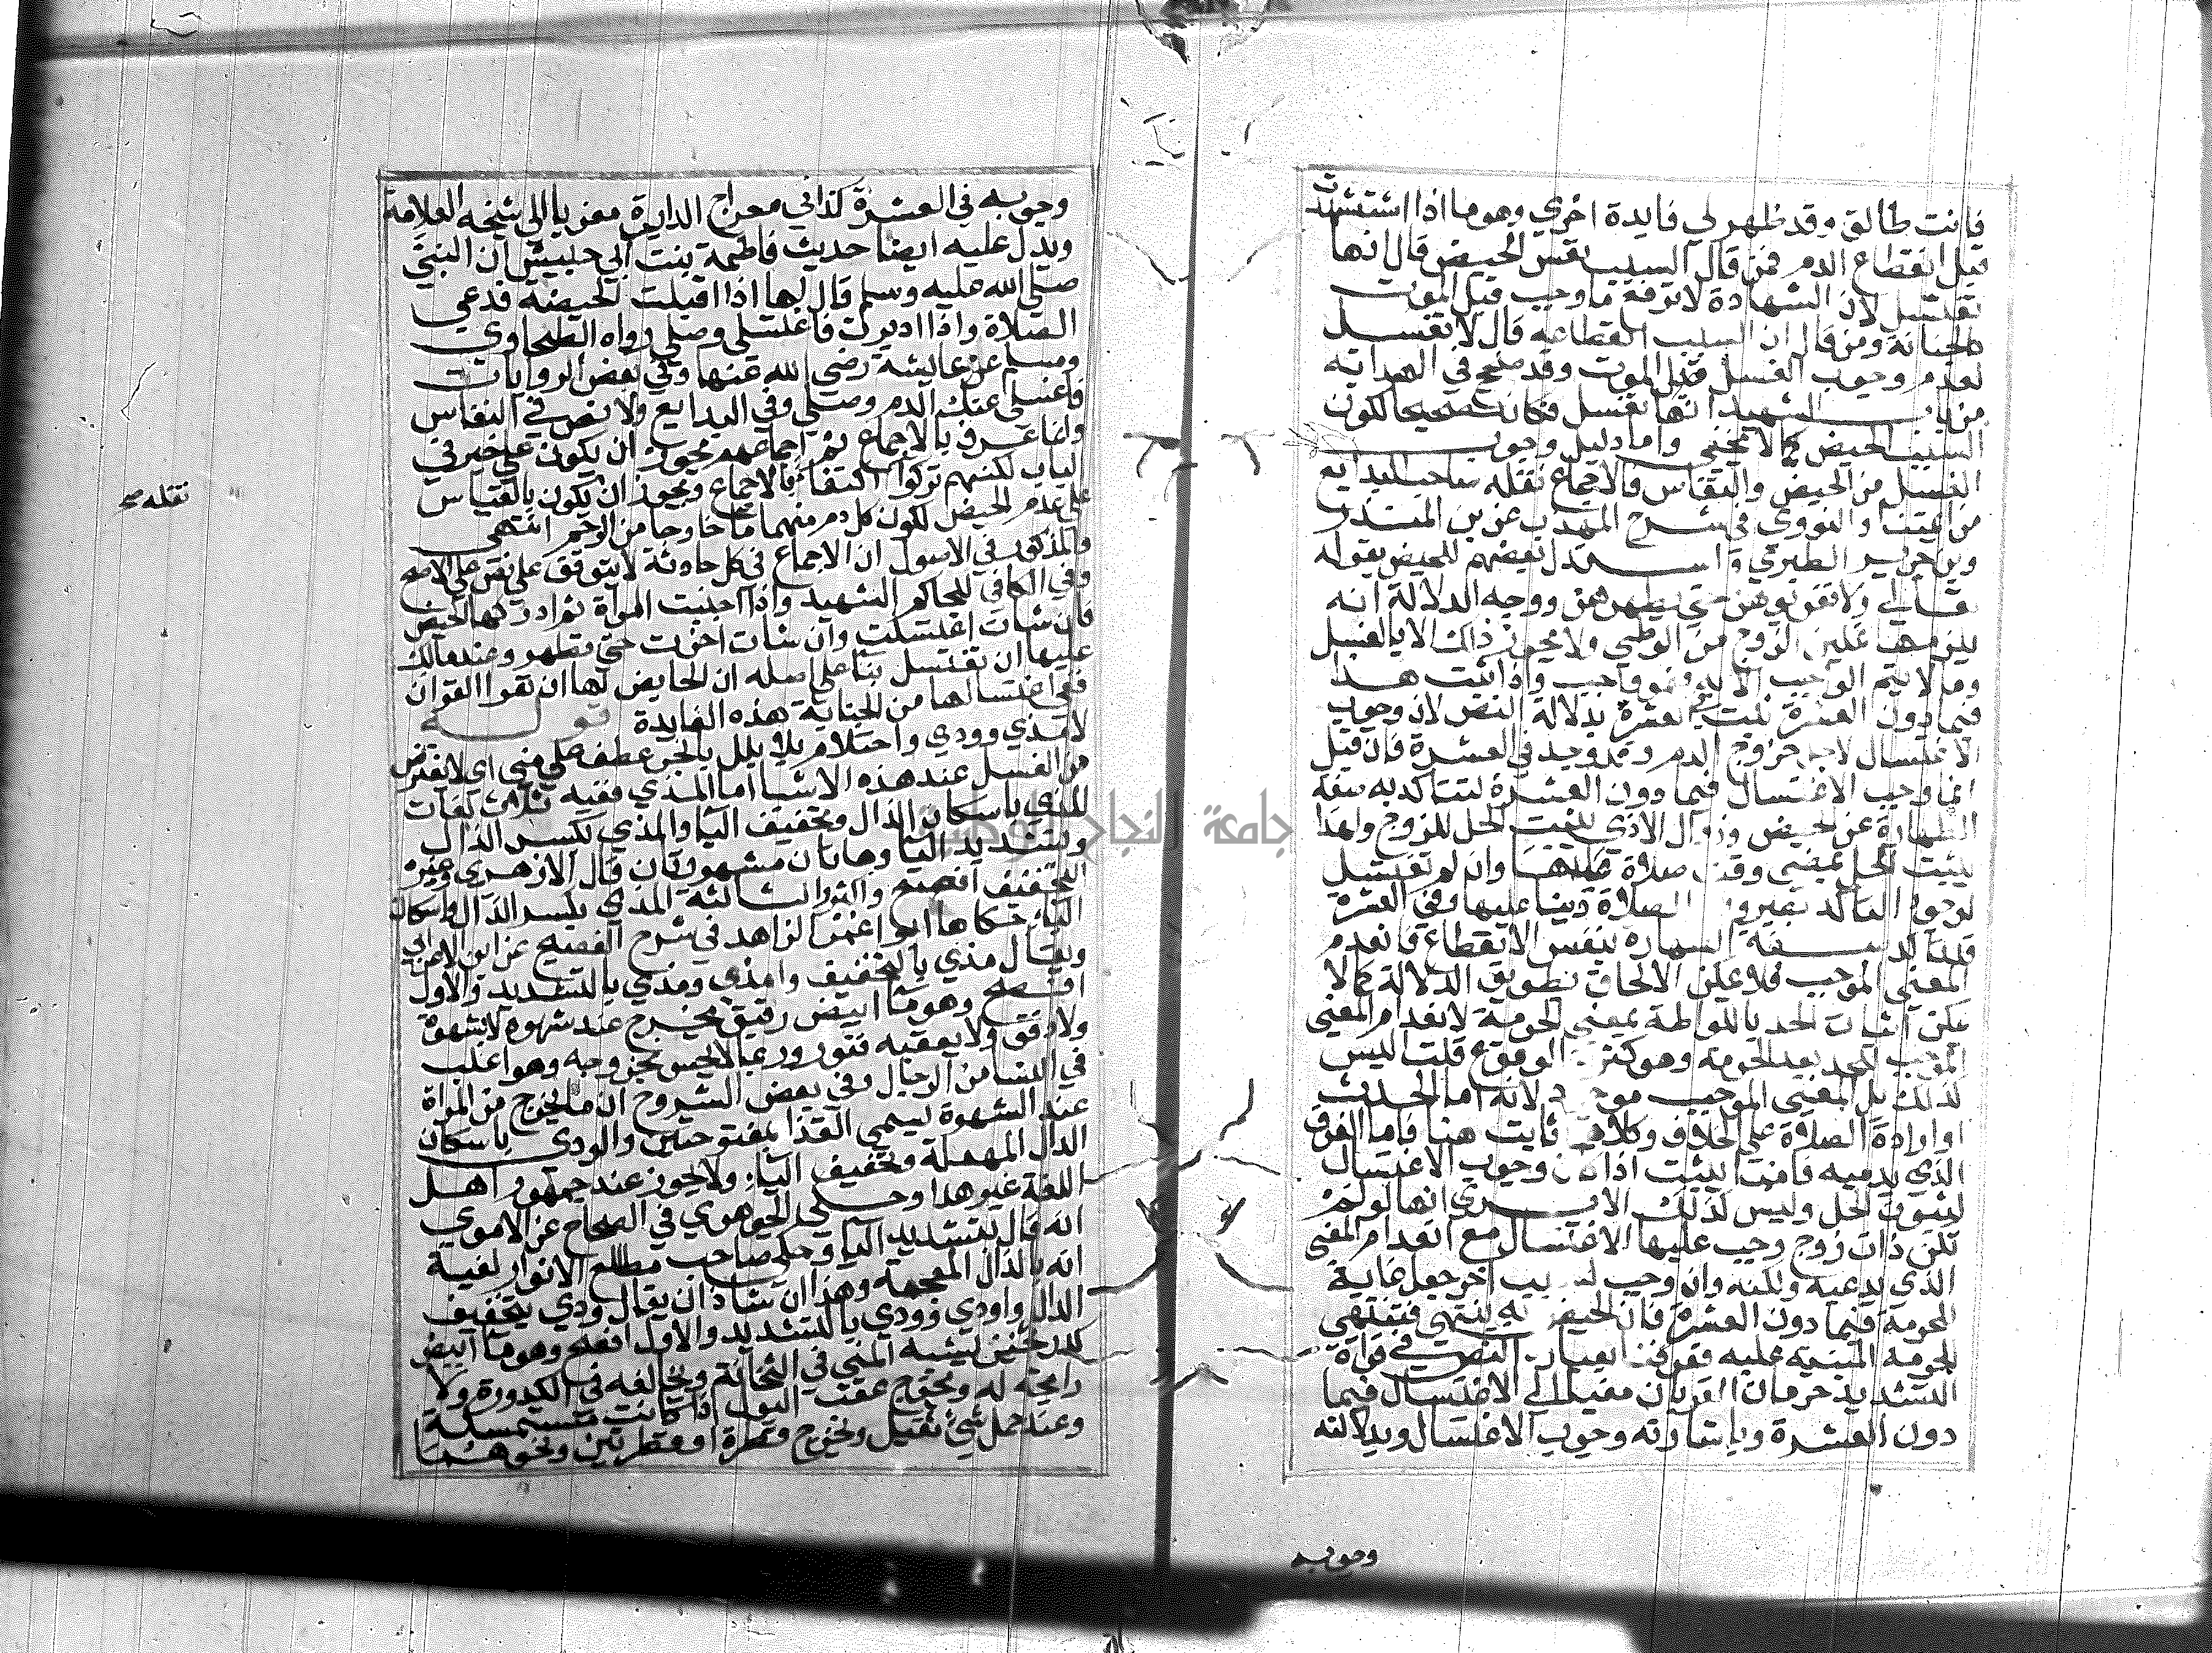 فانت طالق وقد ظهر لي فايدة اخري وهوما اذا اشتشهدت
قبل انقطاع الدم فمن قال السبب نفس الحيض قال انها
تغتسل لان الشهادة لا ترفع ما وجب قبل الموت
كالجنابة ومن قال ان السبب انقطاعه قال لا تغسل
لعدم وجوب الغسل قبل الموت وقد صحح في الهداية
من باب الشهيد انها تغسل فكان تصحيحا لكون
السبب الحيض كما لا يخفي واما دليل وجوب
الغسل من الحيض والنفاس فالاجماع نقله صاحب البدايع
من ايمتنا والنووي في شرح المهذب عن بن المنذر
وبن جرير الطبري واستدل بعضهم للحيض بقوله
تعالي ولا تقربوهن حتي يطهرن ووجه الدلالة انه
يلزمها تمكين الزوج من الوطي ولا يجوز ذلك الا بالغسل
وما لا يتم الواجب الا به فهو واجب واذا ثبت هذا
فيما دون العشرة ثبت في العشرة بدلالة النص لان وجوب
الاغتسال لاجل خروج الدم وقد وجد في العشرة فان قيل
انما وجب الاغتسال فيما دون العشرة لتتاكد به صفة
الطهارة عن الحيض وزوال الاذي ليثبت الحل للزوج ولهذا
يثبت الحل بمضي وقت صلاة عليها وان لم تغتسل
لوجود التاكد بصيرورة الصلاة دينا عليها وفي العشرة
قد تاكد صفة الطهارة بنفس الانقطاع فانعدم
المعني الموجب فلا يمكن الالحاق بطريق الدلالة كما لا
يمكن اثبات الحد باللواطة بمعني الحرمة لانعدام المعني
الموجب للحد بعد الحرمة وهو كثرة الوقوع قلت ليس
كذلك بل المعني الموجب موجود لانه اما الحدث
او ارادة الصلاة علي الخلاف وكلاهما ثابت هنا فاما الفرق
الذي يدعيه فانما يثبت اذا كان وجوب الاغتسال
لثبوت الحل وليس كذلك الا يري انها لو لم
تكن ذات زوج وجب عليها الاغتسال مع انعدام المعني
الذي يدعيه ولكنه وان وجب لسبب اخر جعل غاية
للحرمة فيما دون العشرة فان الحيض به ينتهي فتنتهي
الحرمة المبنية عليه فعرفنا بعبارة النص في قراة
التشديد حرمان القربان مغيا الي الاغتسال فيما
دون العشرة وباشارته وجوب الاغتسال وبدلالته
وجوبه
وجوبه في العشرة كذا في معراج الدارية معزيا الي شيخه العلامة
ويدل عليه ايضا حديث فاطمة بنت ابي حبيش ان النبي
صلي الله عليه وسلم قال لها اذا اقبلت الحيضة فدعي
الصلاة واذا ادبرت فاغتسلي وصلي رواه الطحاوي
ومسلم عن عايشة رضي الله عنها وفي بعض الروايات
فاغسلي عنك الدم وصلي وفي البدايع ولا نص في النفاس
وانما عرف بالاجماع ثم اجماعهم يجوز ان يكون علي خبر في
الباب لكنهم تركوا اكتفا بالاجماع ويجوز ان يكون بالقياس
علي عدم الحيض لكون كل دم منهما خارجا من الرحم انتهي
والمذكور في الاصول ان الاجماع في كل حادثة لا يتوقف علي نص علي الاصح
نقله صح
وفي الكافي للحاكم الشهيد واذا اجنبت المراة ثم ادركها الحيض
فان شات اغتسلت وان شات اخرت حتي تطهر وعند مالك
عليها ان تغتسل بنا علي اصله ان الحايض لها ان تقرا القران
ففي اغتسالها من الجنابة هذه الفايدة قوله
لا مذي وودي واحتلام بلا بلل بالجر عطف علي مني اي لا يفترض
من الغسل عند هذه الاشيا اما المذي ففيه ثلاث لغات
المذي باسكان الذال وتخفيف اليا والمذي بكسر الذال
وتشديد اليا وهاتان مشهورتان قال الازهري وغيره
التخفيف افصح واكثر الثالثة المذي بكسر الذال واسكان
الياء حكاها ابو عمر الزاهد في شرح الفصيح عن ابن الاعرابي
ويقال مذي بالتخفيف وامذي ومذي بالتشديد والاول
افصح وهو ما ابيض رقيق يخرج عند شهوة لا بشهوة
ولا دفق ولا يعقبه فتور وربما لا يحس بخروجه وهو اغلب
في النسا من الرجال وفي بعض الشروح ان ما يخرج من المراة
عند الشهوة يسمي القذا بمفتوحتين والودي باسكان
الدال المهملة وتخفيف الياء ولا يجوز عند جمهور اهل
اللغة غير هذا وحكي الجوهري في الصحاح عن الاموي
انه قال بتشديد اليا وحكي صاحب مطالع الانوار لغية
انه بالذال المعجمة وهذا ان شاذان يقال ودي بتخفيف
الدال واودي وودي بالتشديد والاول افصح وهو ما ابيض
كدر ثخين يشبه المني في الثخانة ويخالفه في الكدورة ولا
رايحة له ويخرج عقب البول اذا كانت مستمسكة
وعند حمل شئ ثقيل ويخرج قطرة او قطرتين ونحوهما
جامعة النجاح الوطنية